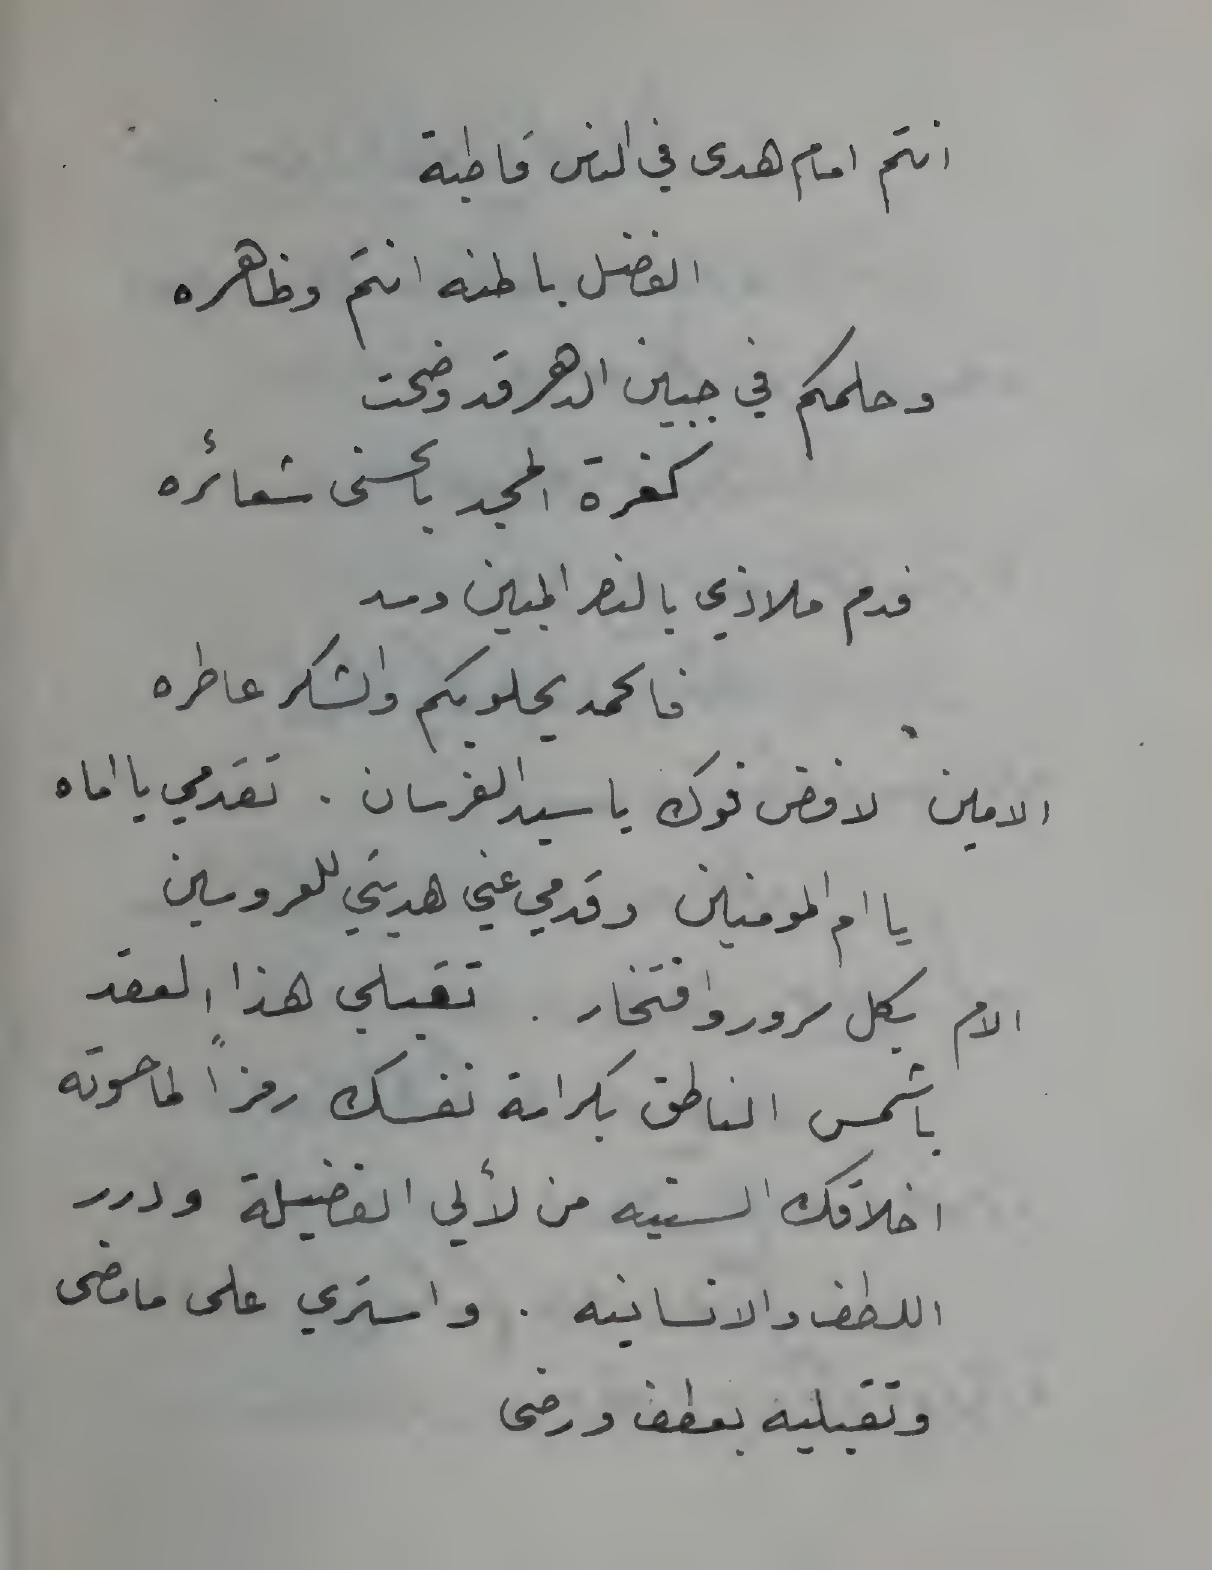 انتم امام هدى في الناس قاطبة
الفضل باطنه انتم وظاهره
وحلمكم في جبين الدهر قد وضحت
كغرة المجد بالحسنى شعائره
فدم ملاذي بالنصر المبين وسد
فالحمد يحلو بكم والشكر عاطره
الامين لا فض فوك يا سيد الفرسان . تقدمي يا اماه
يا ام المومنين وقدمي عني هديتي للعروسين
الام بكل سرور وافتخار . تقبلي هذا العقد
يا شمس الناطق بكرامة نفسك رمزاً لما حوته
اخلاقك السنيه من لألي الفضيلة ودرر
اللطف والانسانيه . واستري على ما مضى
وتقبليه بعطف ورضى